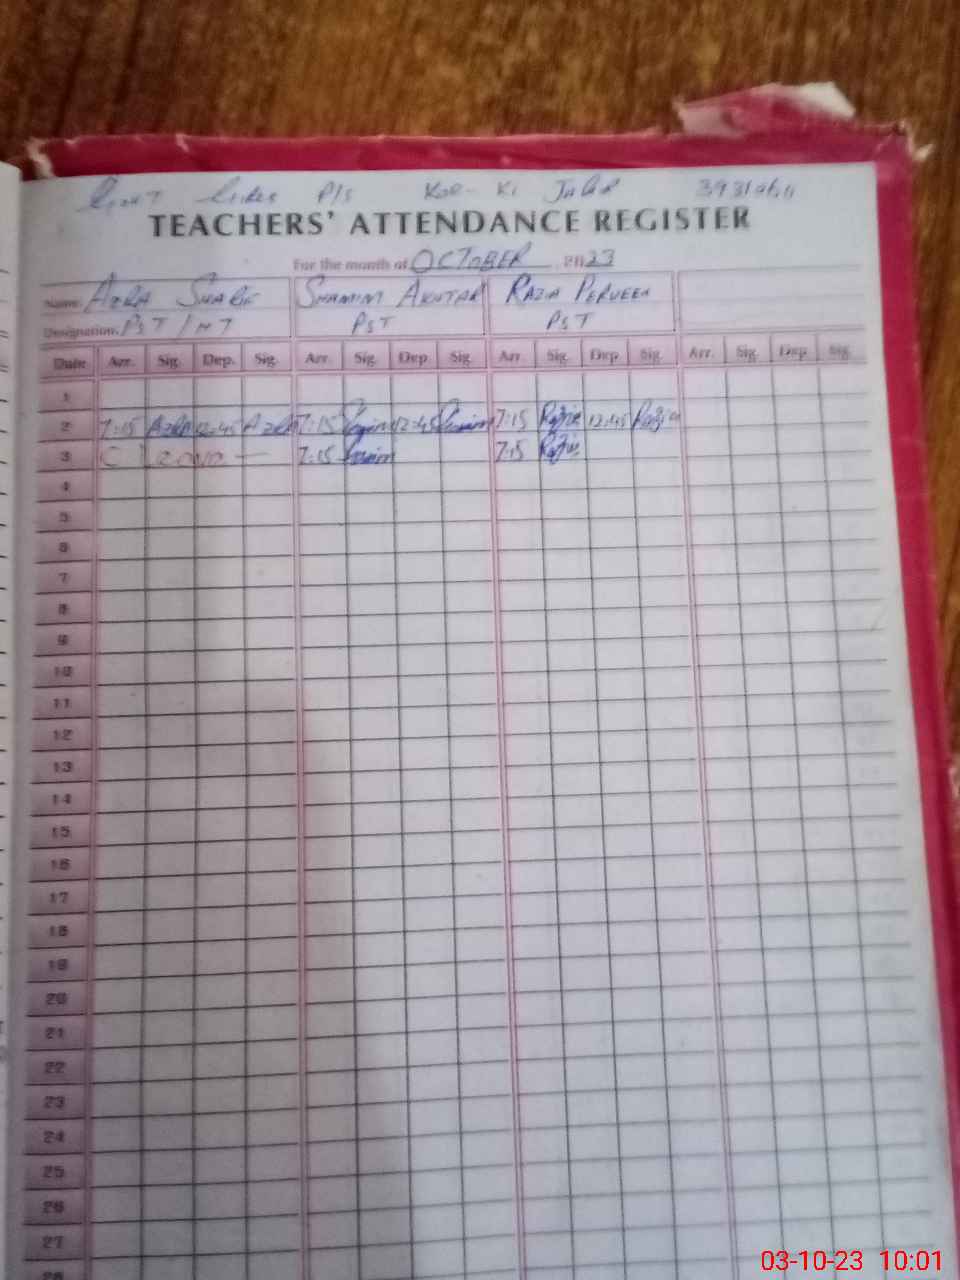 Govt Girls P/S Kot- Ki
TEACHERS' ATTENDANCE REGISTER
For the month of OCTOBER 2023
Name: AZRA SHARIF SHAMIM AKHTAR RAZIA PERVEEN
Designation: PST / HT PST PST
Date Arr. Sig. Dep. Sig. Arr. Sig. Dep Sig. Arr. Sig. Dep Sig. Arr. Sig. Dep Sig
1
2 7:15 Azra 12:45 Azra 7:15 12:45 7:15 Razia 12:45 Razia
3 C Leave — 7:15 7:15 Razia
4
5
6
7
8
9
10
11
12
13
14
15
16
17
18
19
20
21
22
23
24
25
26
27
28
03-10-23 10:01